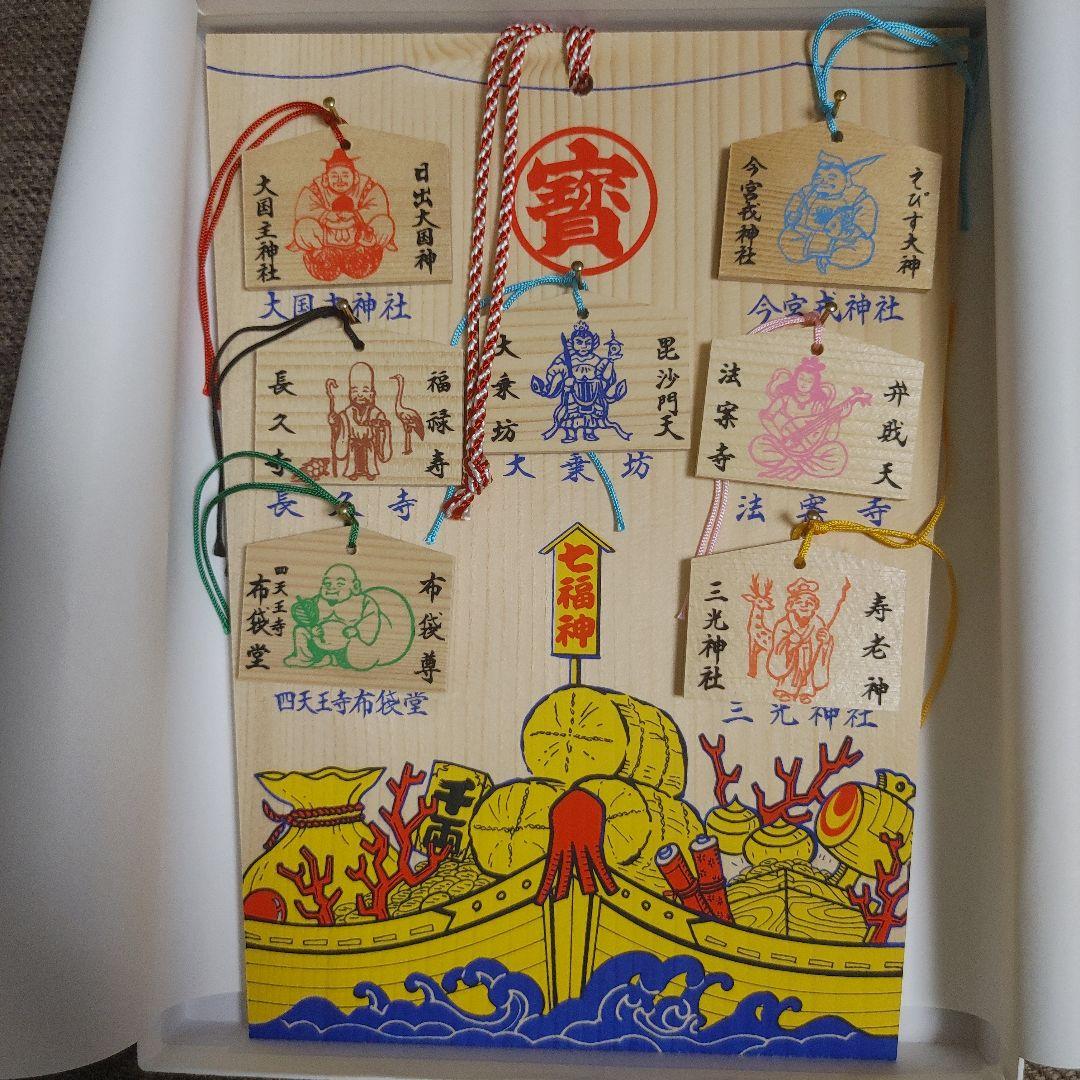 寳
大国主神社
日出大国神
大国主神社
今宮戎神社
えびす大神
今宮戎神社
長久寺
福禄寿
長久寺
大乗坊
毘沙門天
大乗坊
法案寺
弁戝天
法案寺
四天王寺
布袋堂
布袋尊
四天王寺布袋堂
三光神社
寿老神
三光神社
七福神
千両